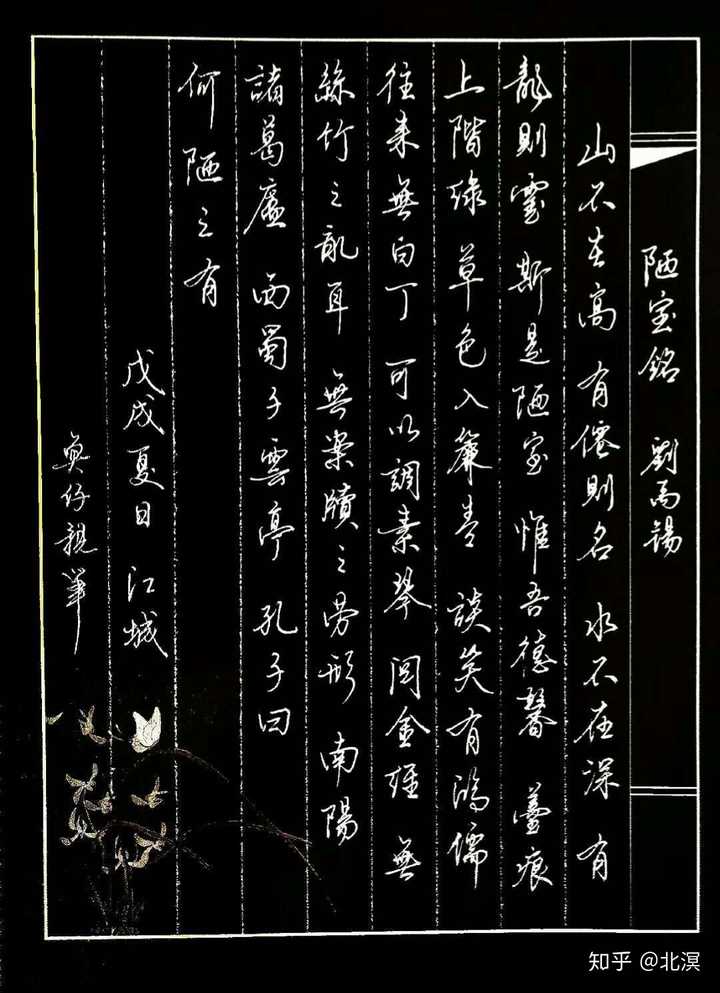 陋室銘 劉禹錫
山不在高 有僊則名 水不在深 有
龍則靈 斯是陋室 惟吾德馨 薹痕
上階綠 草色入簾青 談笑有鴻儒
往来無白丁 可以調素琴 閲金經 無
絲竹之亂耳 無案牘之勞形 南陽
諸葛廬 西蜀子雲亭 孔子曰
何陋之有
戊戌夏日 江城
奐仔親筆
知乎 @北溟